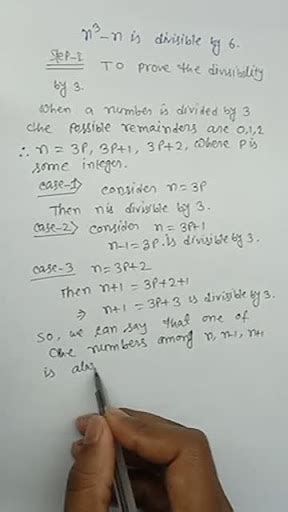 n³-n is divisible by 6.
Step-1 To prove the divisibility
by 3.
When a number is divided by 3
the possible remainders are 0,1,2
∴ n = 3P, 3P+1, 3P+2, where P is
some integer.
case-1> consider n=3P
Then n is divisible by 3.
case-2> consider n = 3P+1
n-1=3P. is divisible by 3.
case-3 n=3P+2
Then n+1 = 3P+2+1
⇒ n+1 = 3P+3 is divisible by 3.
So, we can say that one of
the numbers among n, n-1, n+1
is alw